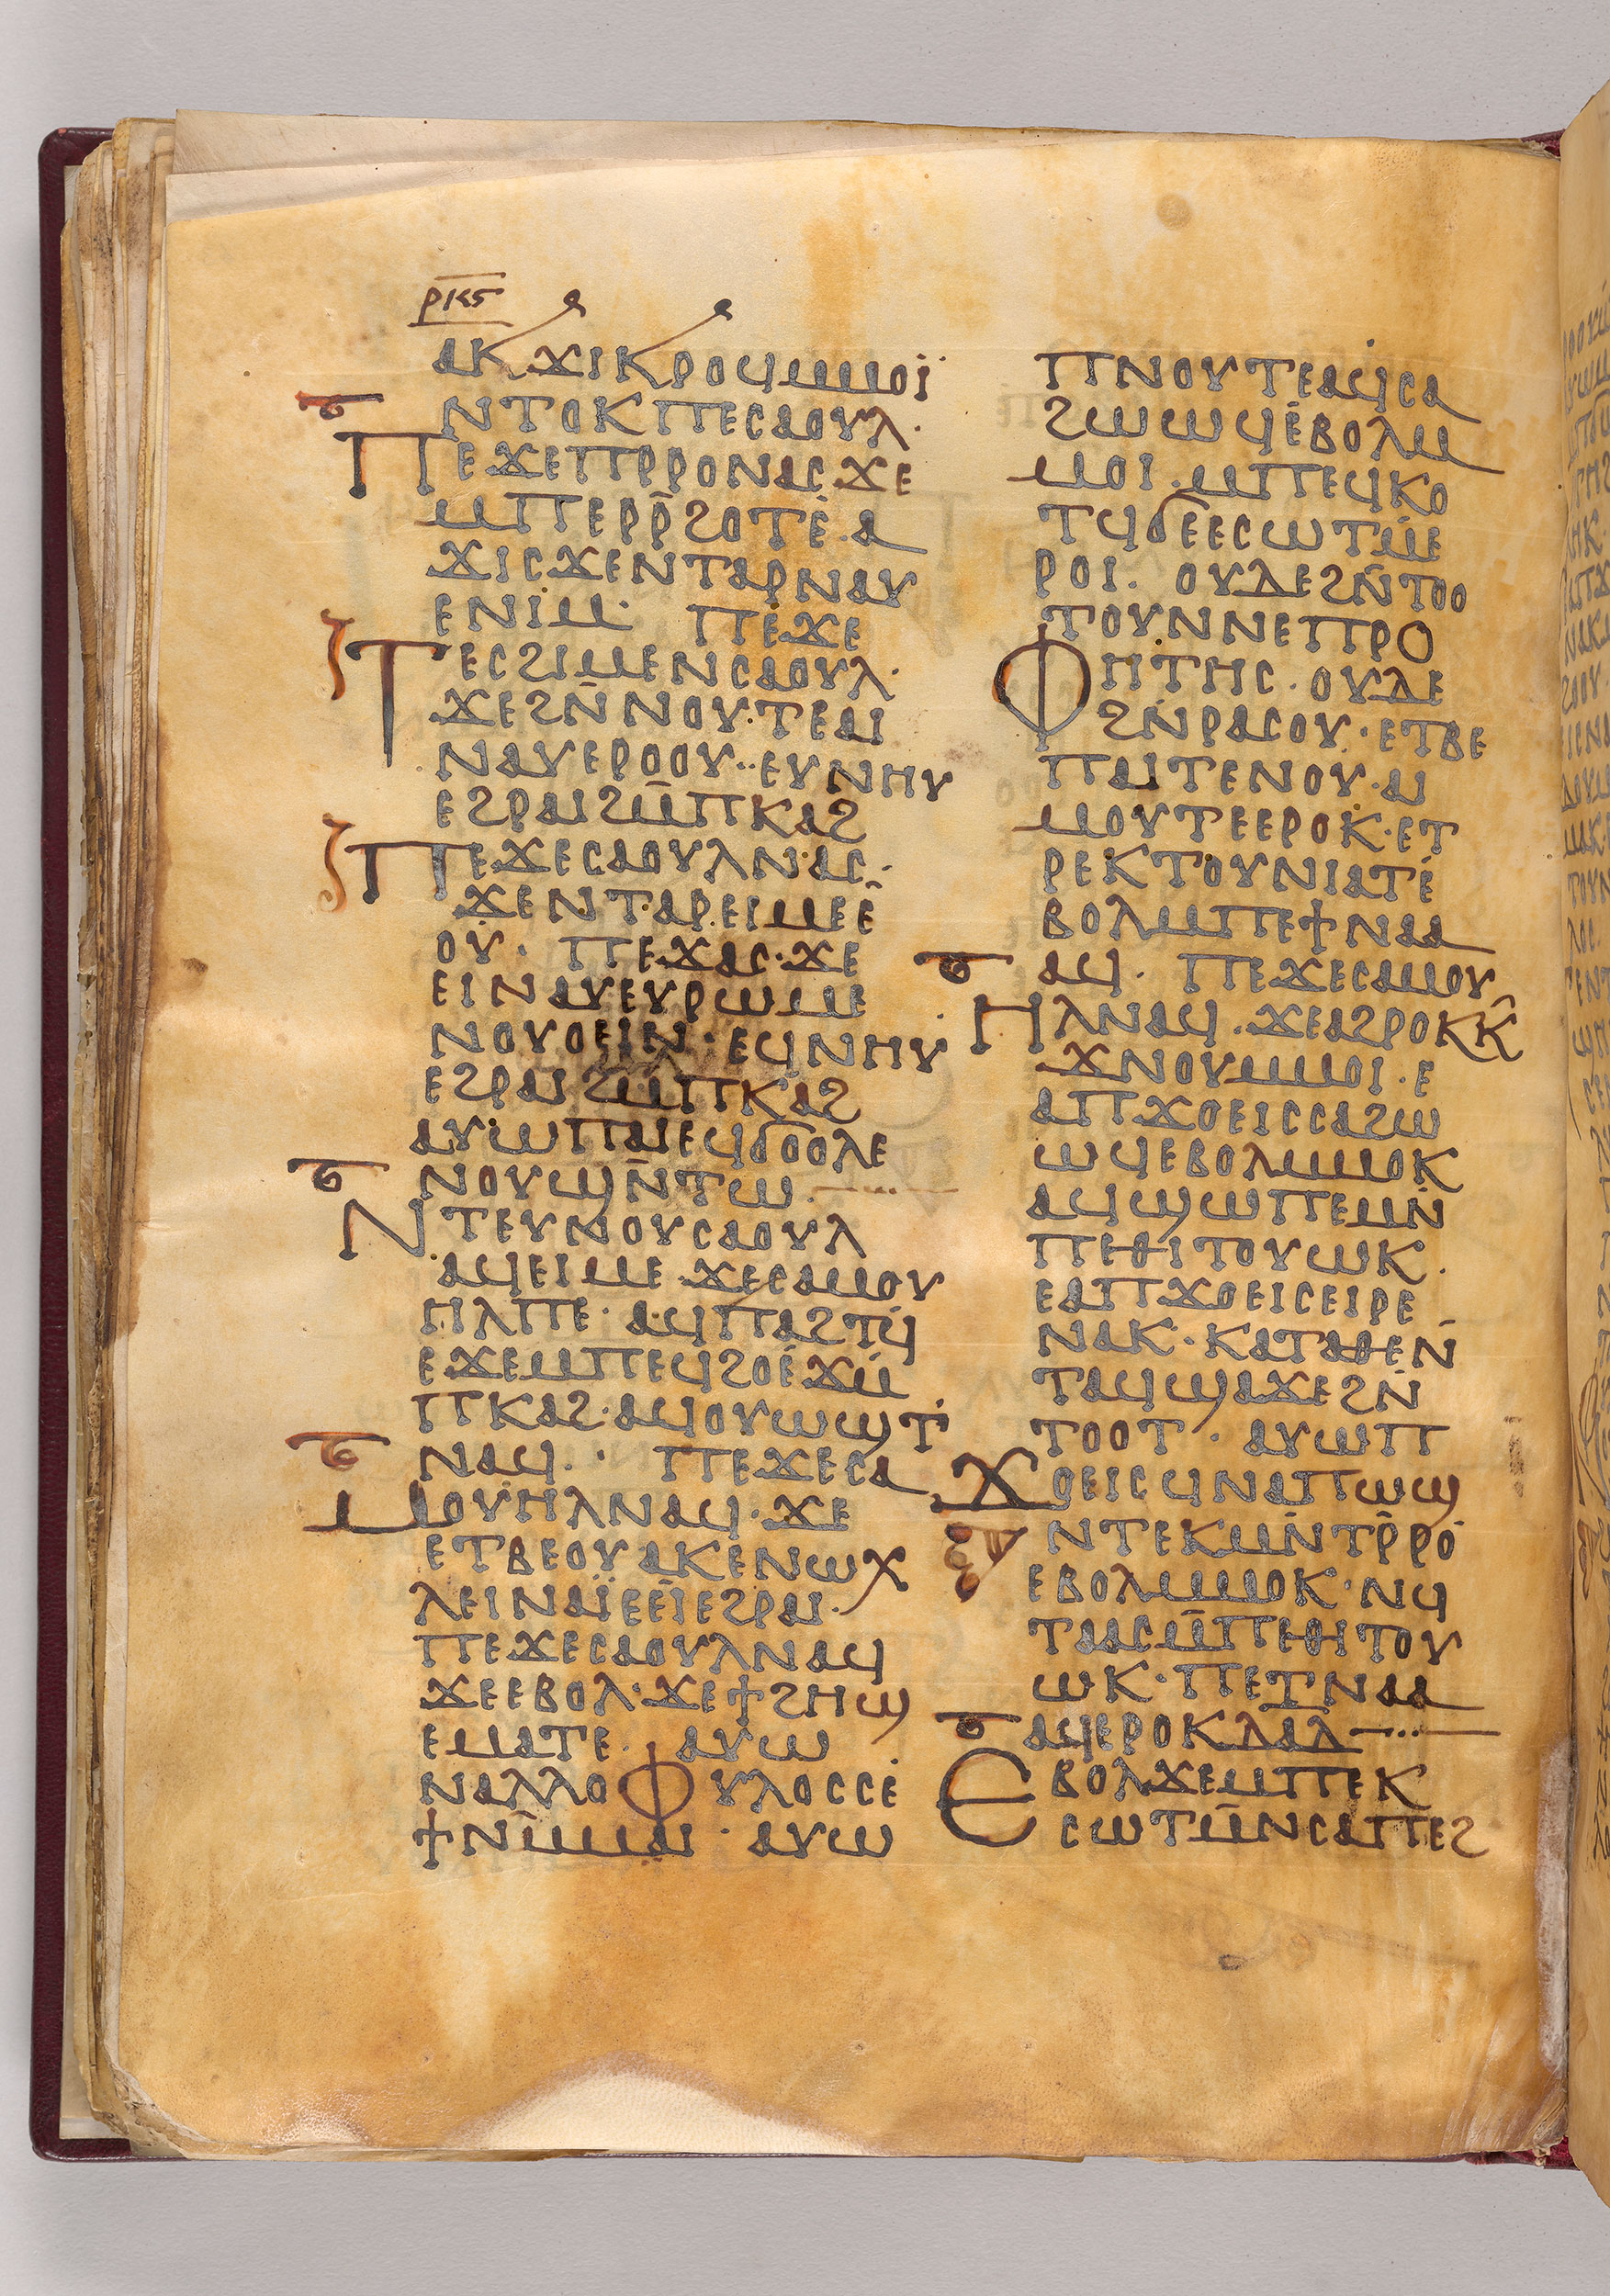 ⲣⲕⲋ
ⲁⲕϫⲓⲕⲣⲟϥⲙⲙⲟⲓ̈
ⲛⲧⲟⲕⲡⲉⲥⲁⲟⲩⲗ·
ⲡⲉϫⲉⲡⲣⲣⲟⲛⲁⲥ·ϫⲉ
ⲙⲡⲉⲣⲣ̄ϩⲟⲧⲉ·ⲁ
ϫⲓⲥϫⲉⲛⲧⲁⲣⲛⲁⲩ
ⲉⲛⲓⲙ· ⲡⲉϫⲉ
ⲧⲉⲥϩⲓⲙⲉⲛⲥⲁⲟⲩⲗ·
ϫⲉϩⲛ̄ⲛⲟⲩⲧⲉⲁⲓ
ⲛⲁⲩⲉⲣⲟⲟⲩ··ⲉⲩⲛⲏⲩ
ⲉϩⲣⲁⲓϩⲙ̄ⲡⲕⲁϩ
ⲡⲉϫⲉⲥⲁⲟⲩⲗⲛⲁⲥ·
ϫⲉⲛⲧⲁⲣⲉⲓⲙⲉⲉ̄
ⲟⲩ· ⲡⲉϫⲁⲥ·ϫⲉ
ⲉⲓⲛⲁⲩⲉⲩⲣⲱⲙⲉ
ⲛⲟⲩⲟⲉⲓⲛ·ⲉϥⲛⲏⲩ
ⲉϩⲣⲁⲓϩⲙ̄ⲡⲕⲁϩ
ⲁⲩⲱⲡⲁⲓⲉϥϭⲟⲟⲗⲉ
ⲛⲟⲩϣⲛ̄ⲧⲱ·
ⲛⲧⲉⲩⲛⲟⲩⲥⲁⲟⲩⲗ
ⲁϥⲉⲓⲙⲉ·ϫⲉⲥⲁⲙⲟⲩ
ⲏⲗⲡⲉ·ⲁϥⲡⲁϩⲧϥ̄
ⲉϫⲉⲙⲡⲉϥϩⲟⲉ̇ϫⲙ̄
ⲡⲕⲁϩ·ⲁϥⲟⲩⲱϣⲧ̇
ⲛⲁϥ·· ⲡⲉϫⲉⲥⲁ
ⲙⲟⲩⲏⲗⲛⲁϥ·ϫⲉ
ⲉⲧⲃⲉⲟⲩⲁⲕⲉⲛⲱⲭ
ⲗⲉⲓⲛⲁⲓ̈ⲉⲉ̄ⲓⲉϩⲣⲁⲓ·
ⲡⲉϫⲉⲥⲁⲟⲩⲗⲛⲁϥ
ϫⲉⲉⲃⲟⲗ·ϫⲉϯϩⲏϣ
ⲉⲙⲁⲧⲉ· ⲁⲩⲱ
ⲛⲁⲗⲗⲟⲫⲩⲗⲟⲥⲥⲉ̇
ϯⲛⲙ̄ⲙⲁⲓ·ⲁⲩⲱ
ⲡⲛⲟⲩⲧⲉⲁϥⲥⲁ
ϩⲱⲱϥⲉ̇ⲃⲟⲗⲙ
ⲙⲟⲓ·ⲙⲡⲉϥⲕⲟ
ⲧϥϭⲉⲉⲥⲱⲧⲙ̄ⲉ
ⲣⲟⲓ· ⲟⲩⲇⲉϩⲛ̄ⲧⲟⲟ
ⲧⲟⲩⲛⲛⲉⲡⲣⲟ
ⲫⲏⲧⲏⲥ·ⲟⲩⲇⲉ
ϩⲛ̄ⲣⲁⲥⲟⲩ·ⲉⲧⲃⲉ
ⲡⲁⲓⲧⲉⲛⲟⲩ·ⲁⲓ
ⲙⲟⲩⲧⲉⲉⲣⲟⲕ·ⲉⲧ
ⲣⲉⲕⲧⲟⲩⲛⲓⲁⲧⲉ̇
ⲃⲟⲗⲙⲡⲉϯⲛⲁⲁ
ⲁϥ· ⲡⲉϫⲉⲥⲁⲙⲟⲩ
ⲏⲗⲛⲁϥ·ϫⲉⲁϩⲣⲟⲕⲕ̄
ϫⲛⲟⲩⲙⲙⲟⲓ·ⲉ
ⲁⲡϫⲟⲉⲓⲥⲥⲁϩⲱ
ⲱϥⲉⲃⲟⲗⲙⲙⲟⲕ
ⲁϥϣⲱⲡⲉⲙⲛ̄
ⲡⲉⲑⲓⲧⲟⲩⲱⲕ·
ⲉⲁⲡϫⲟⲉⲓⲥⲉⲓⲣⲉ
ⲛⲁⲕ·ⲕⲁⲧⲁⲑⲉⲛ̄
ⲧⲁϥϣⲁϫⲉϩⲛ̄
ⲧⲟⲟⲧ·ⲁⲩⲱⲡ
ϫⲟⲉⲓⲥϥⲛⲁⲡⲱϣ
ⲛⲧⲉⲕⲙⲛ̄ⲧⲣ̄ⲣⲟ̇
ⲉⲃⲟⲗⲙⲙⲟⲕ·ⲛϥ
ⲧⲁⲁⲥⲙ̄ⲡⲉⲑⲓⲧⲟⲩ
ⲱⲕ·ⲡⲉⲧⲛⲁⲁ
ⲁϥⲉⲣⲟⲕⲗⲁⲗ
ⲉⲃⲟⲗϫⲉⲙⲡⲉⲕ
ⲥⲱⲧⲙ̄ⲛⲥⲁⲡⲉϩ